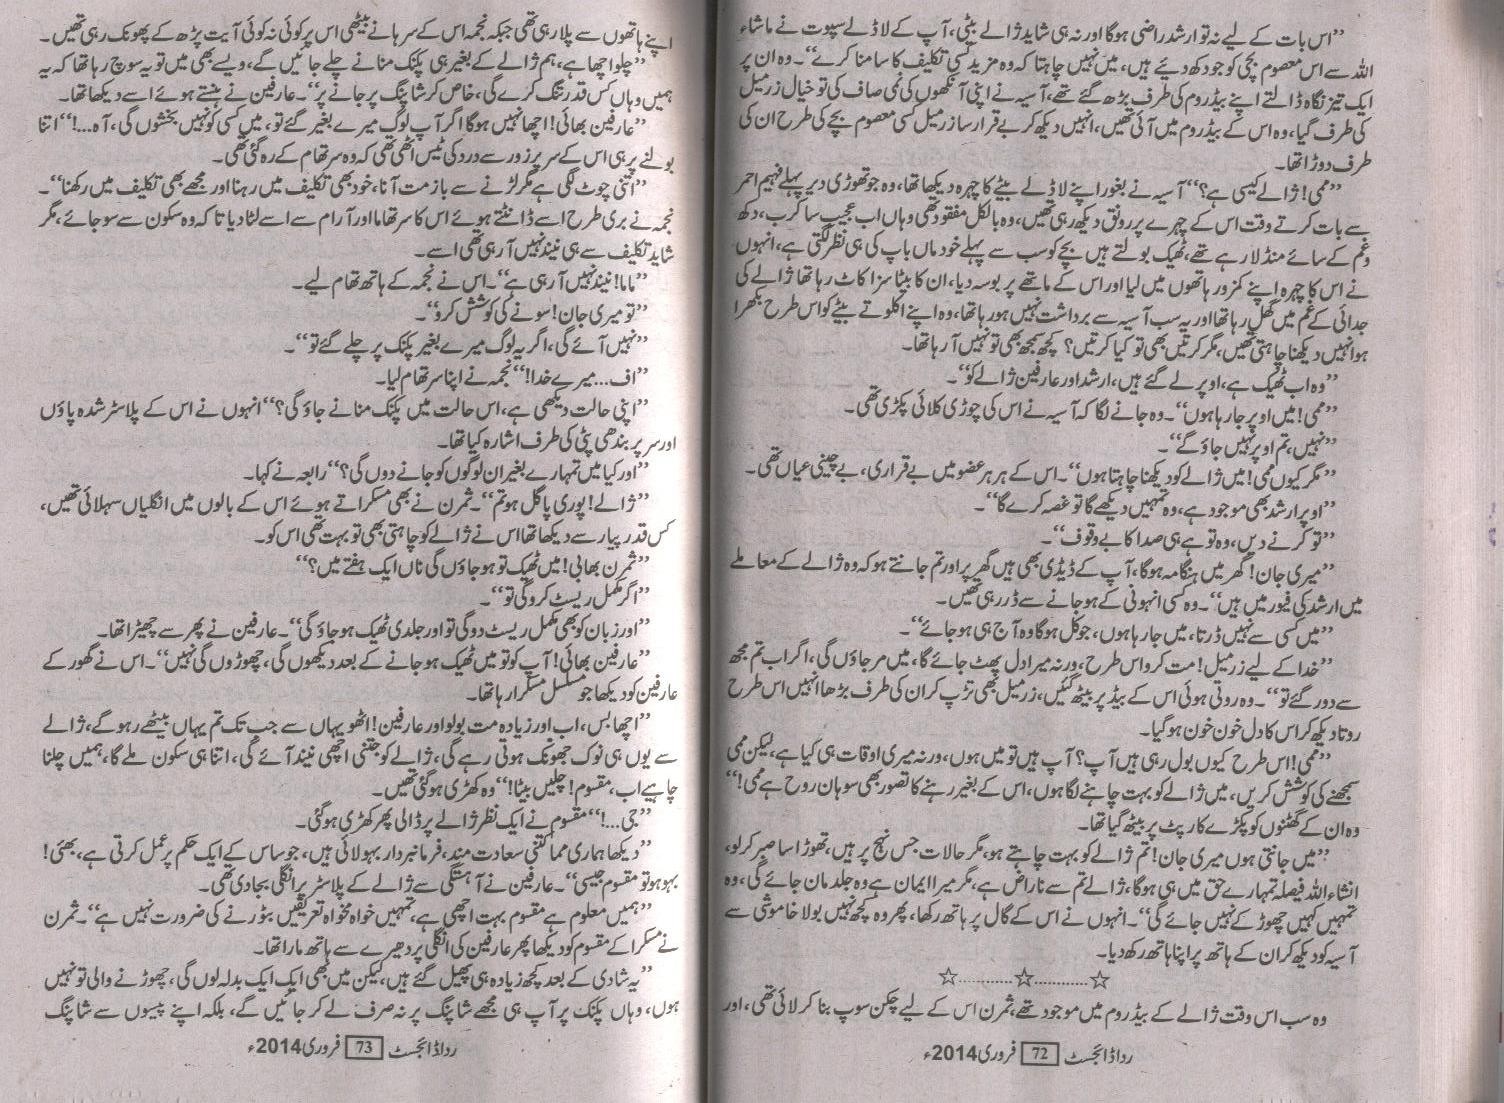 ’’اس بات کے لیے نہ تو ارشد راضی ہوگا اور نہ ہی شاید ژالے بیٹی، آپ کے لاڈلے سپوت نے ماشاء
اللہ سے اس معصوم بچی کو جو دکھ دیئے ہیں، میں نہیں چاہتا کہ وہ مزید کسی تکلیف کا سامنا کرے‘‘۔ وہ ان پر
ایک تیز نگاہ ڈالتے اپنے بیڈروم کی طرف بڑھ گئے تھے، آسیہ نے اپنی آنکھوں کی نمی صاف کی تو خیال زرمیل
کی طرف گیا، وہ اس کے بیڈروم میں آئی تھیں، انہیں دیکھ کر بے قرار سا زرمیل کسی معصوم بچے کی طرح ان کی
طرف دوڑا تھا۔
’’ممی! ژالے کیسی ہے؟‘‘ آسیہ نے بغور اپنے لاڈلے بیٹے کا چہرہ دیکھا تھا، وہ جو تھوڑی دیر پہلے فہیم احمر
سے بات کرتے وقت اس کے چہرے پر رونق دیکھ رہی تھیں، وہ بالکل مفقود تھی وہاں اب عجیب سا کرب، دکھ
وغم کے سائے منڈلا رہے تھے، ٹھیک بولتے ہیں بچے کو سب سے پہلے خود ماں باپ کی ہی نظر لگتی ہے، انہوں
نے اس کا چہرہ اپنے کمزور ہاتھوں میں لیا اور اس کے ماتھے پر بوسہ دیا، ان کا بیٹا سزا کاٹ رہا تھا ژالے کی
جدائی کے غم میں گھل رہا تھا اور یہ سب آسیہ سے برداشت نہیں ہو رہا تھا، وہ اپنے اکلوتے بیٹے کو اس طرح بکھرا
ہوا نہیں دیکھنا چاہتی تھیں، مگر کرتیں بھی تو کیا کرتیں؟ کچھ سمجھ بھی تو نہیں آرہا تھا۔
’’وہ اب ٹھیک ہے، اوپر لے گئے ہیں، ارشد اور عارفین ژالے کو‘‘۔
’’ممی! میں اوپر جا رہا ہوں‘‘۔ وہ جانے لگا کہ آسیہ نے اس کی چوڑی کلائی پکڑی تھی۔
’’نہیں، تم اوپر نہیں جاؤ گے‘‘۔
’’مگر کیوں ممی! میں ژالے کو دیکھنا چاہتا ہوں‘‘۔ اس کے ہر ہر عضو میں بے قراری، بے چینی عیاں تھی۔
’’اوپر ارشد بھی موجود ہے، وہ تمہیں دیکھے گا تو غصہ کرے گا‘‘۔
’’تو کرنے دیں، وہ تو ہے ہی صدا کا بے وقوف‘‘۔
’’میری جان! گھر میں ہنگامہ ہوگا، آپ کے ڈیڈی بھی ہیں گھر پر اور تم جانتے ہو کہ وہ ژالے کے معاملے
میں ارشد کی فیور میں ہیں‘‘۔ وہ کسی انہونی کے ہو جانے سے ڈر رہی تھیں۔
’’میں کسی سے نہیں ڈرتا، میں جا رہا ہوں، جو کل ہوگا وہ آج ہی ہو جائے‘‘۔
’’خدا کے لیے زرمیل! مت کرو اس طرح، ورنہ میرا دل پھٹ جائے گا، میں مر جاؤں گی، اگر اب تم مجھ
سے دور گئے تو‘‘۔ وہ روتی ہوئی اس کے بیڈ پر بیٹھ گئیں، زرمیل بھی تڑپ کر ان کی طرف بڑھا انہیں اس طرح
روتا دیکھ کر اس کا دل خون خون ہو گیا۔
’’ممی! اس طرح کیوں بول رہی ہیں آپ؟ آپ ہیں تو میں ہوں، ورنہ میری اوقات ہی کیا ہے، لیکن ممی
سمجھنے کی کوشش کریں، میں ژالے کو بہت چاہنے لگا ہوں، اس کے بغیر رہنے کا تصور بھی سوہان روح ہے ممی!‘‘
وہ ان کے گھٹنوں کو پکڑے کارپٹ پر بیٹھ گیا تھا۔
’’میں جانتی ہوں میری جان! تم ژالے کو بہت چاہتے ہو، مگر حالات جس نہج پر ہیں، تھوڑا سا صبر کر لو،
انشاء اللہ فیصلہ تمہارے حق میں ہی ہوگا، ژالے تم سے ناراض ہے، مگر میرا ایمان ہے وہ جلد مان جائے گی، وہ
تمہیں کہیں چھوڑ کے نہیں جائے گی‘‘۔ انہوں نے اس کے گال پر ہاتھ رکھا، پھر وہ کچھ نہیں بولا خاموشی سے
آسیہ کو دیکھ کر ان کے ہاتھ پر اپنا ہاتھ رکھ دیا۔
☆............☆............☆
وہ سب اس وقت ژالے کے بیڈروم میں موجود تھے، ثمرن اس کے لیے چکن سوپ بنا کر لائی تھی، اور
ردا ڈائجسٹ 72 فروری 2014ء
اپنے ہاتھوں سے پلا رہی تھی جبکہ نجمہ اس کے سرہانے بیٹھی اس پر کوئی نہ کوئی آیت پڑھ کے پھونک رہی تھیں۔
’’چلو اچھا ہے، ہم ژالے کے بغیر ہی پکنک منانے چلے جائیں گے، ویسے بھی میں تو یہ سوچ رہا تھا کہ یہ
ہمیں وہاں کس قدر تنگ کرے گی، خاص کر شاپنگ پر جانے پر‘‘۔ عارفین نے ہنستے ہوئے اسے دیکھا تھا۔
’’عارفین بھائی! اچھا نہیں ہوگا اگر آپ لوگ میرے بغیر گئے تو، میں کسی کو نہیں بخشوں گی، آہ...!‘‘ اتنا
بولنے پر ہی اس کے سر پر زور سے درد کی ٹیس اٹھی تھی کہ وہ سر تھام کے رہ گئی تھی۔
’’اتنی چوٹ لگی ہے مگر لڑنے سے باز مت آنا، خود بھی تکلیف میں رہنا اور مجھے بھی تکلیف میں رکھنا‘‘۔
نجمہ نے بری طرح اسے ڈانٹتے ہوئے اس کا سر تھاما اور آرام سے اسے لٹا دیا تا کہ وہ سکون سے سو جائے، مگر
شاید تکلیف سے ہی نیند نہیں آرہی تھی اسے۔
’’ماما! نیند نہیں آرہی ہے‘‘۔ اس نے نجمہ کے ہاتھ تھام لیے۔
’’تو میری جان! سونے کی کوشش کرو‘‘۔
’’نہیں آئے گی، اگر یہ لوگ میرے بغیر پکنک پر چلے گئے تو‘‘۔
’’اف... میرے خدا!‘‘ نجمہ نے اپنا سر تھام لیا۔
’’اپنی حالت دیکھی ہے، اس حالت میں پکنک منانے جاؤ گی؟‘‘ انہوں نے اس کے پلاسٹر شدہ پاؤں
اور سر پر بندھی پٹی کی طرف اشارہ کیا تھا۔
’’اور کیا میں تمہارے بغیر ان لوگوں کو جانے دوں گی؟‘‘ رابعہ نے کہا۔
’’ژالے! پوری پاگل ہو تم‘‘۔ ثمرن نے بھی مسکراتے ہوئے اس کے بالوں میں انگلیاں سہلائی تھیں،
کس قدر پیار سے دیکھا تھا اس نے ژالے کو چاہتی بھی تو بہت تھی اس کو۔
’’ثمرن بھابی! میں ٹھیک تو ہو جاؤں گی ناں ایک ہفتے میں؟‘‘
’’اگر مکمل ریسٹ کرو گی تو‘‘۔
’’اور زبان کو بھی مکمل ریسٹ دو گی تو اور جلدی ٹھیک ہو جاؤ گی‘‘۔ عارفین نے پھر سے چھیڑا تھا۔
’’عارفین بھائی! آپ کو تو میں ٹھیک ہو جانے کے بعد دیکھوں گی، چھوڑوں گی نہیں‘‘۔ اس نے گھور کے
عارفین کو دیکھا جو مسلسل مسکرا رہا تھا۔
’’اچھا بس، اب اور زیادہ مت بولو اور عارفین! اٹھو یہاں سے جب تک تم یہاں بیٹھے رہو گے، ژالے
سے یوں ہی نوک جھونک ہوتی رہے گی، ژالے کو جتنی اچھی نیند آئے گی، اتنا ہی سکون ملے گا، ہمیں چلنا
چاہیے اب، مقسوم! چلیں بیٹا!‘‘ وہ کھڑی ہو گئی تھیں۔
’’جی...!‘‘ مقسوم نے ایک نظر ژالے پر ڈالی پھر کھڑی ہو گئی۔
’’دیکھا ہماری مما کتنی سعادت مند، فرمانبردار بہو لائی ہیں، جو ساس کے ایک حکم پر عمل کرتی ہے، بھئی!
بہو ہو تو مقسوم جیسی‘‘۔ عارفین نے آہستگی سے ژالے کے پلاسٹر پر انگلی بجا دی تھی۔
’’ہمیں معلوم ہے مقسوم بہت اچھی ہے، تمہیں خواہ مخواہ تعریفیں بٹورنے کی ضرورت نہیں ہے‘‘۔ ثمرن
نے مسکرا کے مقسوم کو دیکھا پھر عارفین کی انگلی پر دھیرے سے ہاتھ مارا تھا۔
’’یہ شادی کے بعد کچھ زیادہ ہی پھیل گئے ہیں، لیکن میں بھی ایک ایک بدلہ لوں گی، چھوڑنے والی تو نہیں
ہوں، وہاں پکنک پر آپ ہی مجھے شاپنگ پر نہ صرف لے کر جائیں گے، بلکہ اپنے پیسوں سے شاپنگ
ردا ڈائجسٹ 73 فروری 2014ء